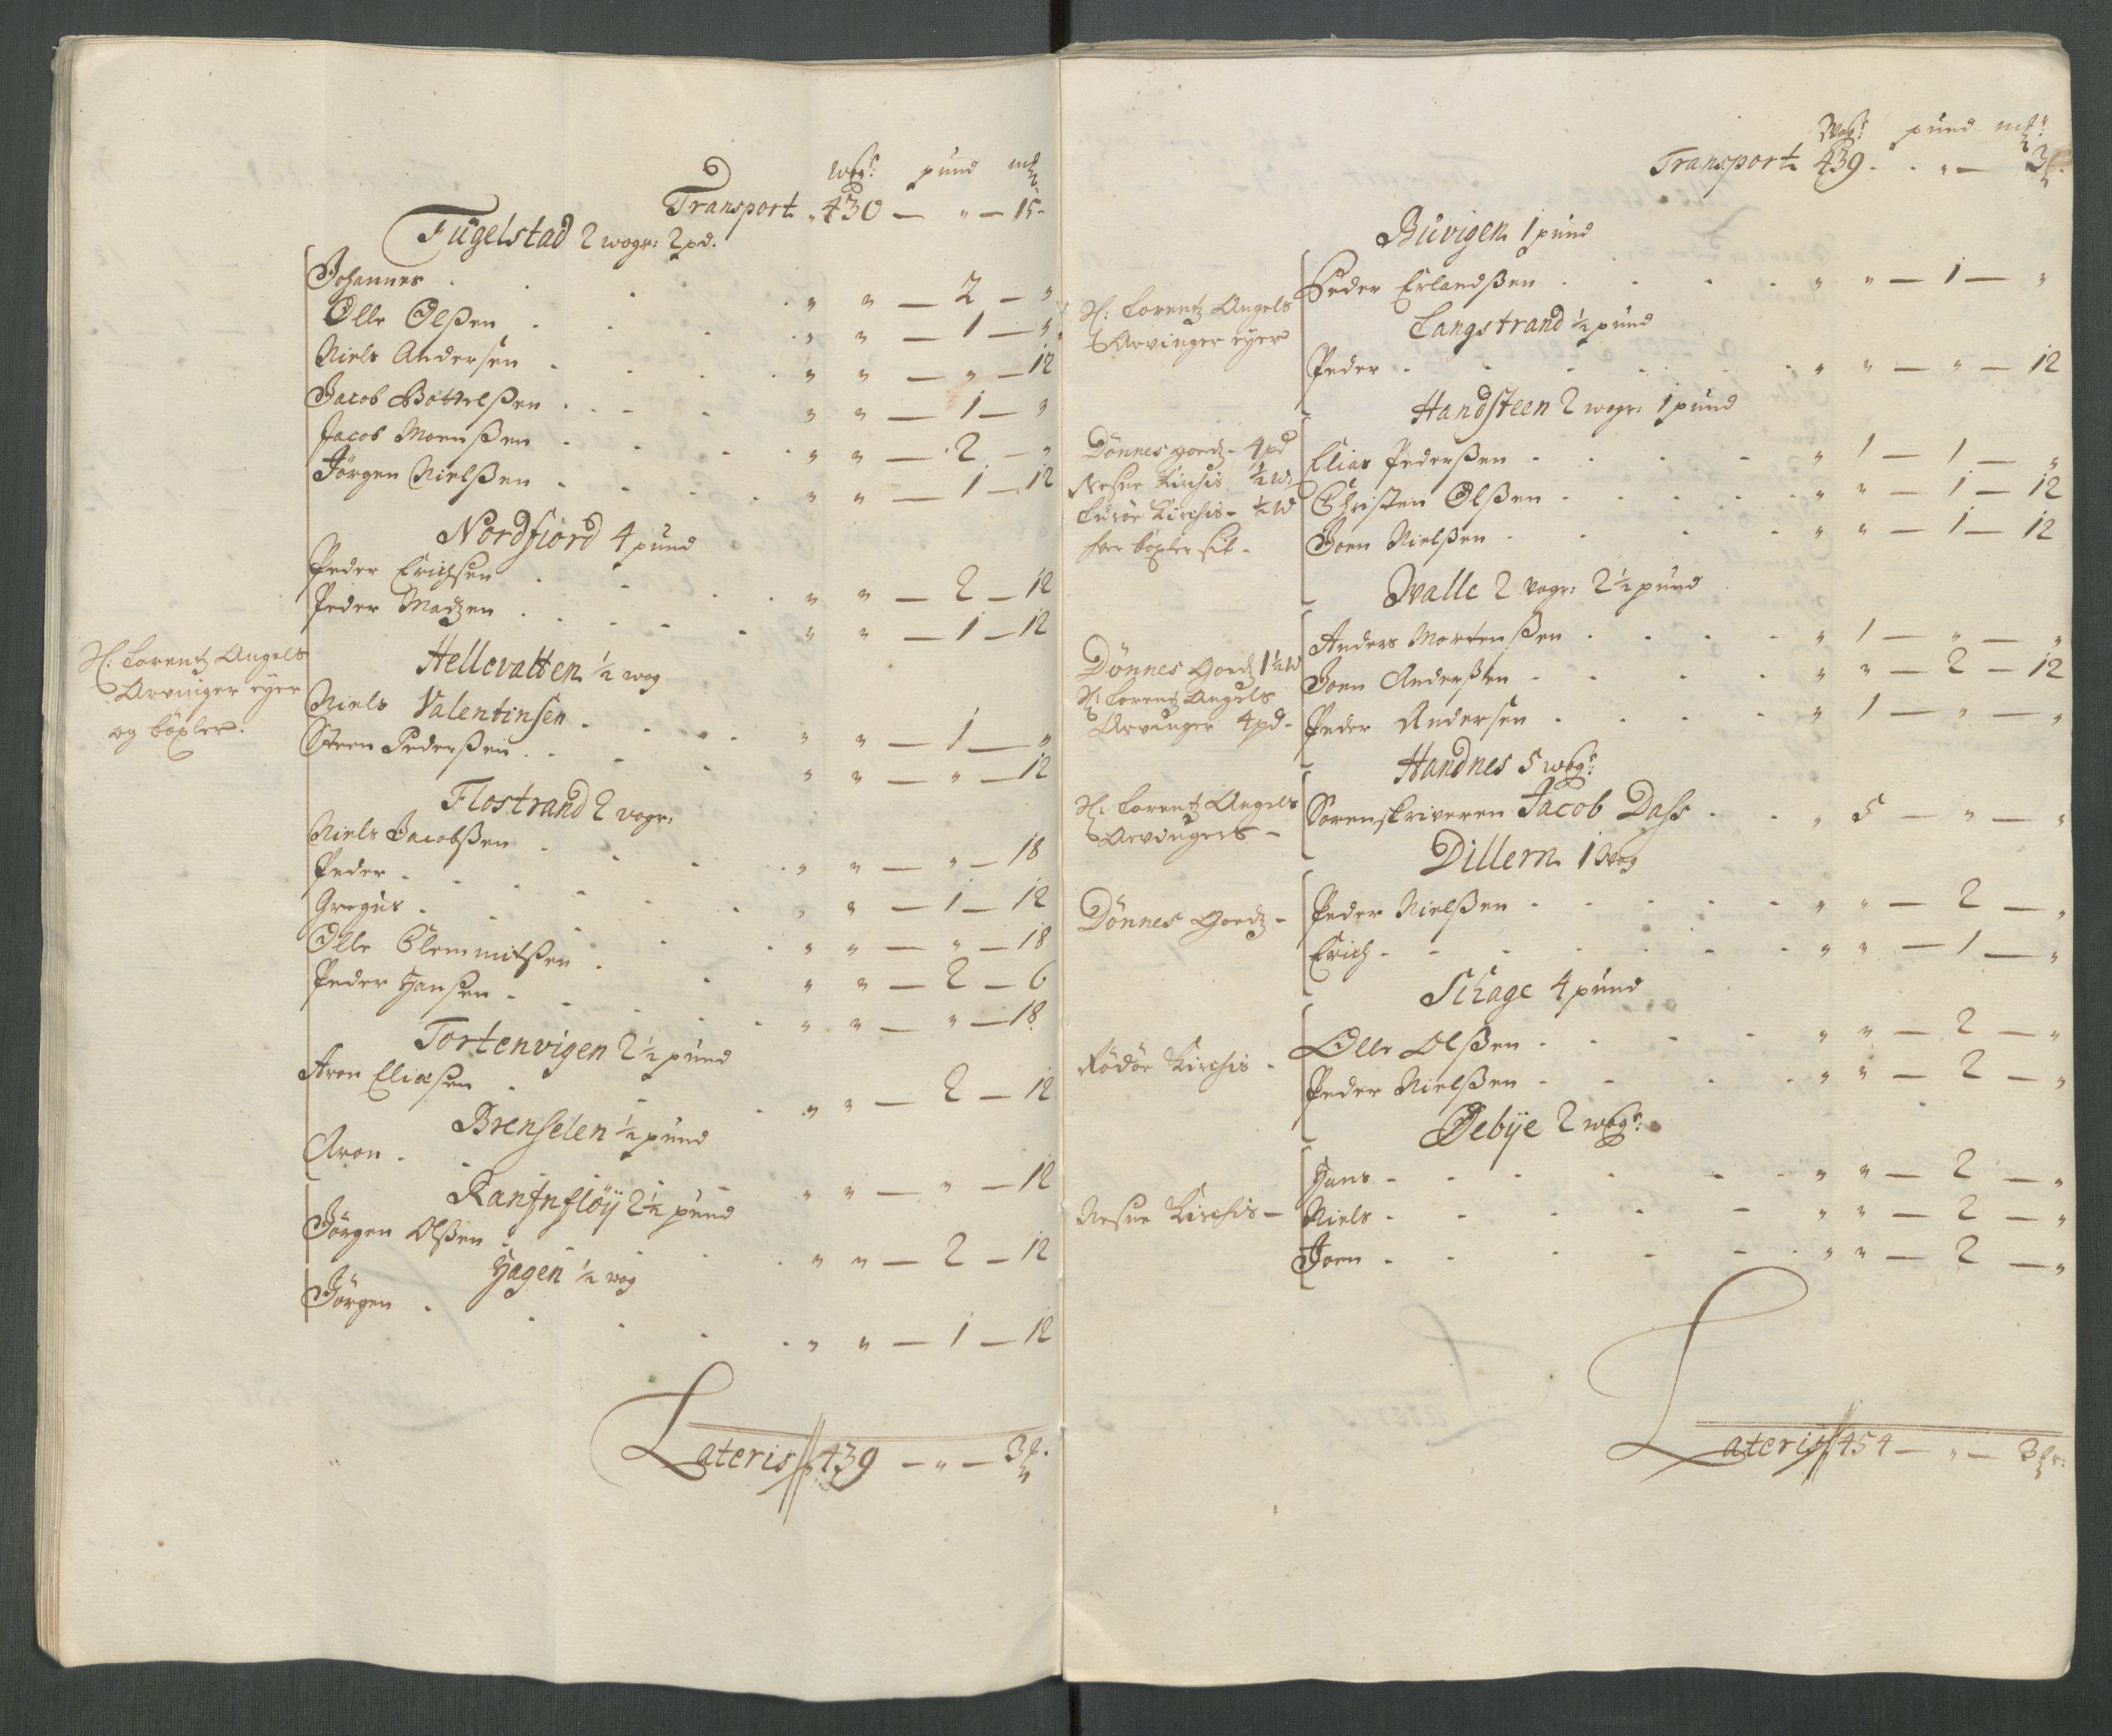 wogr: pund mk
Transport „ 430 — „ — 15-
Fugelstad 2 wogr: 2 pd.
Johannes . „ „ — 2 — „
Olle Olßen . „ „ — 1 — „
Niels Andersen . „ „ — „ — 12
Jacob Bottelßen . „ „ — 1 — „
Jacob Moenßen . „ „ — 2 — „
Jörgen Nielßen . „ „ — 1 — 12
Nordfiord 4 pund
Peder Erichsen . „ „ — 2 — 12
Peder Madzen . „ „ — 1 — 12
H: Lorentz Angels
Arvinger eyer
og böxler.
Hellevatten ½ wog
Niels Valentinsen . „ „ — 1 — „
Steen Pederßen . „ „ — „ — 12
Flostrand 2 vogr:
Niels Jacobßen . „ „ — „ — 18
Peder . „ „ — 1 — 12
Gregus . „ „ — „ — 18
Olle Clemmitßen . „ „ — 2 — 6
Peder Hansen . „ „ — „ — 18
Tortenvigen 2½ pund
Aron Eliasen . „ „ — 2 — 12
Brenselen ½ pund
Aron . „ „ — „ — 12
Ranfnfløÿ 2½ pund
Jörgen Olßen . „ „ — 2 — 12
Hagen ½ wog
Jörgen . „ „ — 1 — 12
Lateris 439 — „ — 3
Wogr: pund mk:
Transport 439 . . „ — 3
Buvigen 1 pund
Peder Erlandßen . „ „ — 1 — „
H: Lorentz Angels
Arvinger eyer
Langstrand ½ pund
Peder . „ „ — „ — 12
Handsteen 2 wogr: 1 pund
Dönnes goedz - 4 pd
Nesne Kirchis ½ w:
Lurøe Kirchis - ½ W
hver böxler sit -
Elias Pederßen . „ 1 — 1 — „
Christen Olßen . „ „ — 1 — 12
Joen Nielßen . „ „ — 1 — 12
Walle 2 vogr: 2½ pund
Dönnes Goedz 1½ W
H: Lorentz Angels
Arvinger 4 pd -
Anders Mortenßen . „ 1 — „ — „
Joen Anderßen . „ „ — 2 — 12
Peder Andersen . „ 1 — „ — „
Handnes 5 wogr:
H: Lorentz Angels
Arvingers -
Sorenskriveren Jacob Dass . „ 5 — „ — „
Dillern 1 Wog
Dönnes Goedz -
Peder Nielßen . „ „ — 2 — „
Erich . „ „ — 1 — „
Schage 4 pund
Rödöe Kirchis -
Olle Olßen . „ „ — 2 — „
Peder Nielßen . „ „ — 2 — „
Øebÿe 2 wogr:
Nesne Kirchis -
Hans . „ „ — 2 — „
Niels . „ „ — 2 — „
Joen . „ „ — 2 — „
Lateris 454 — „ — 3